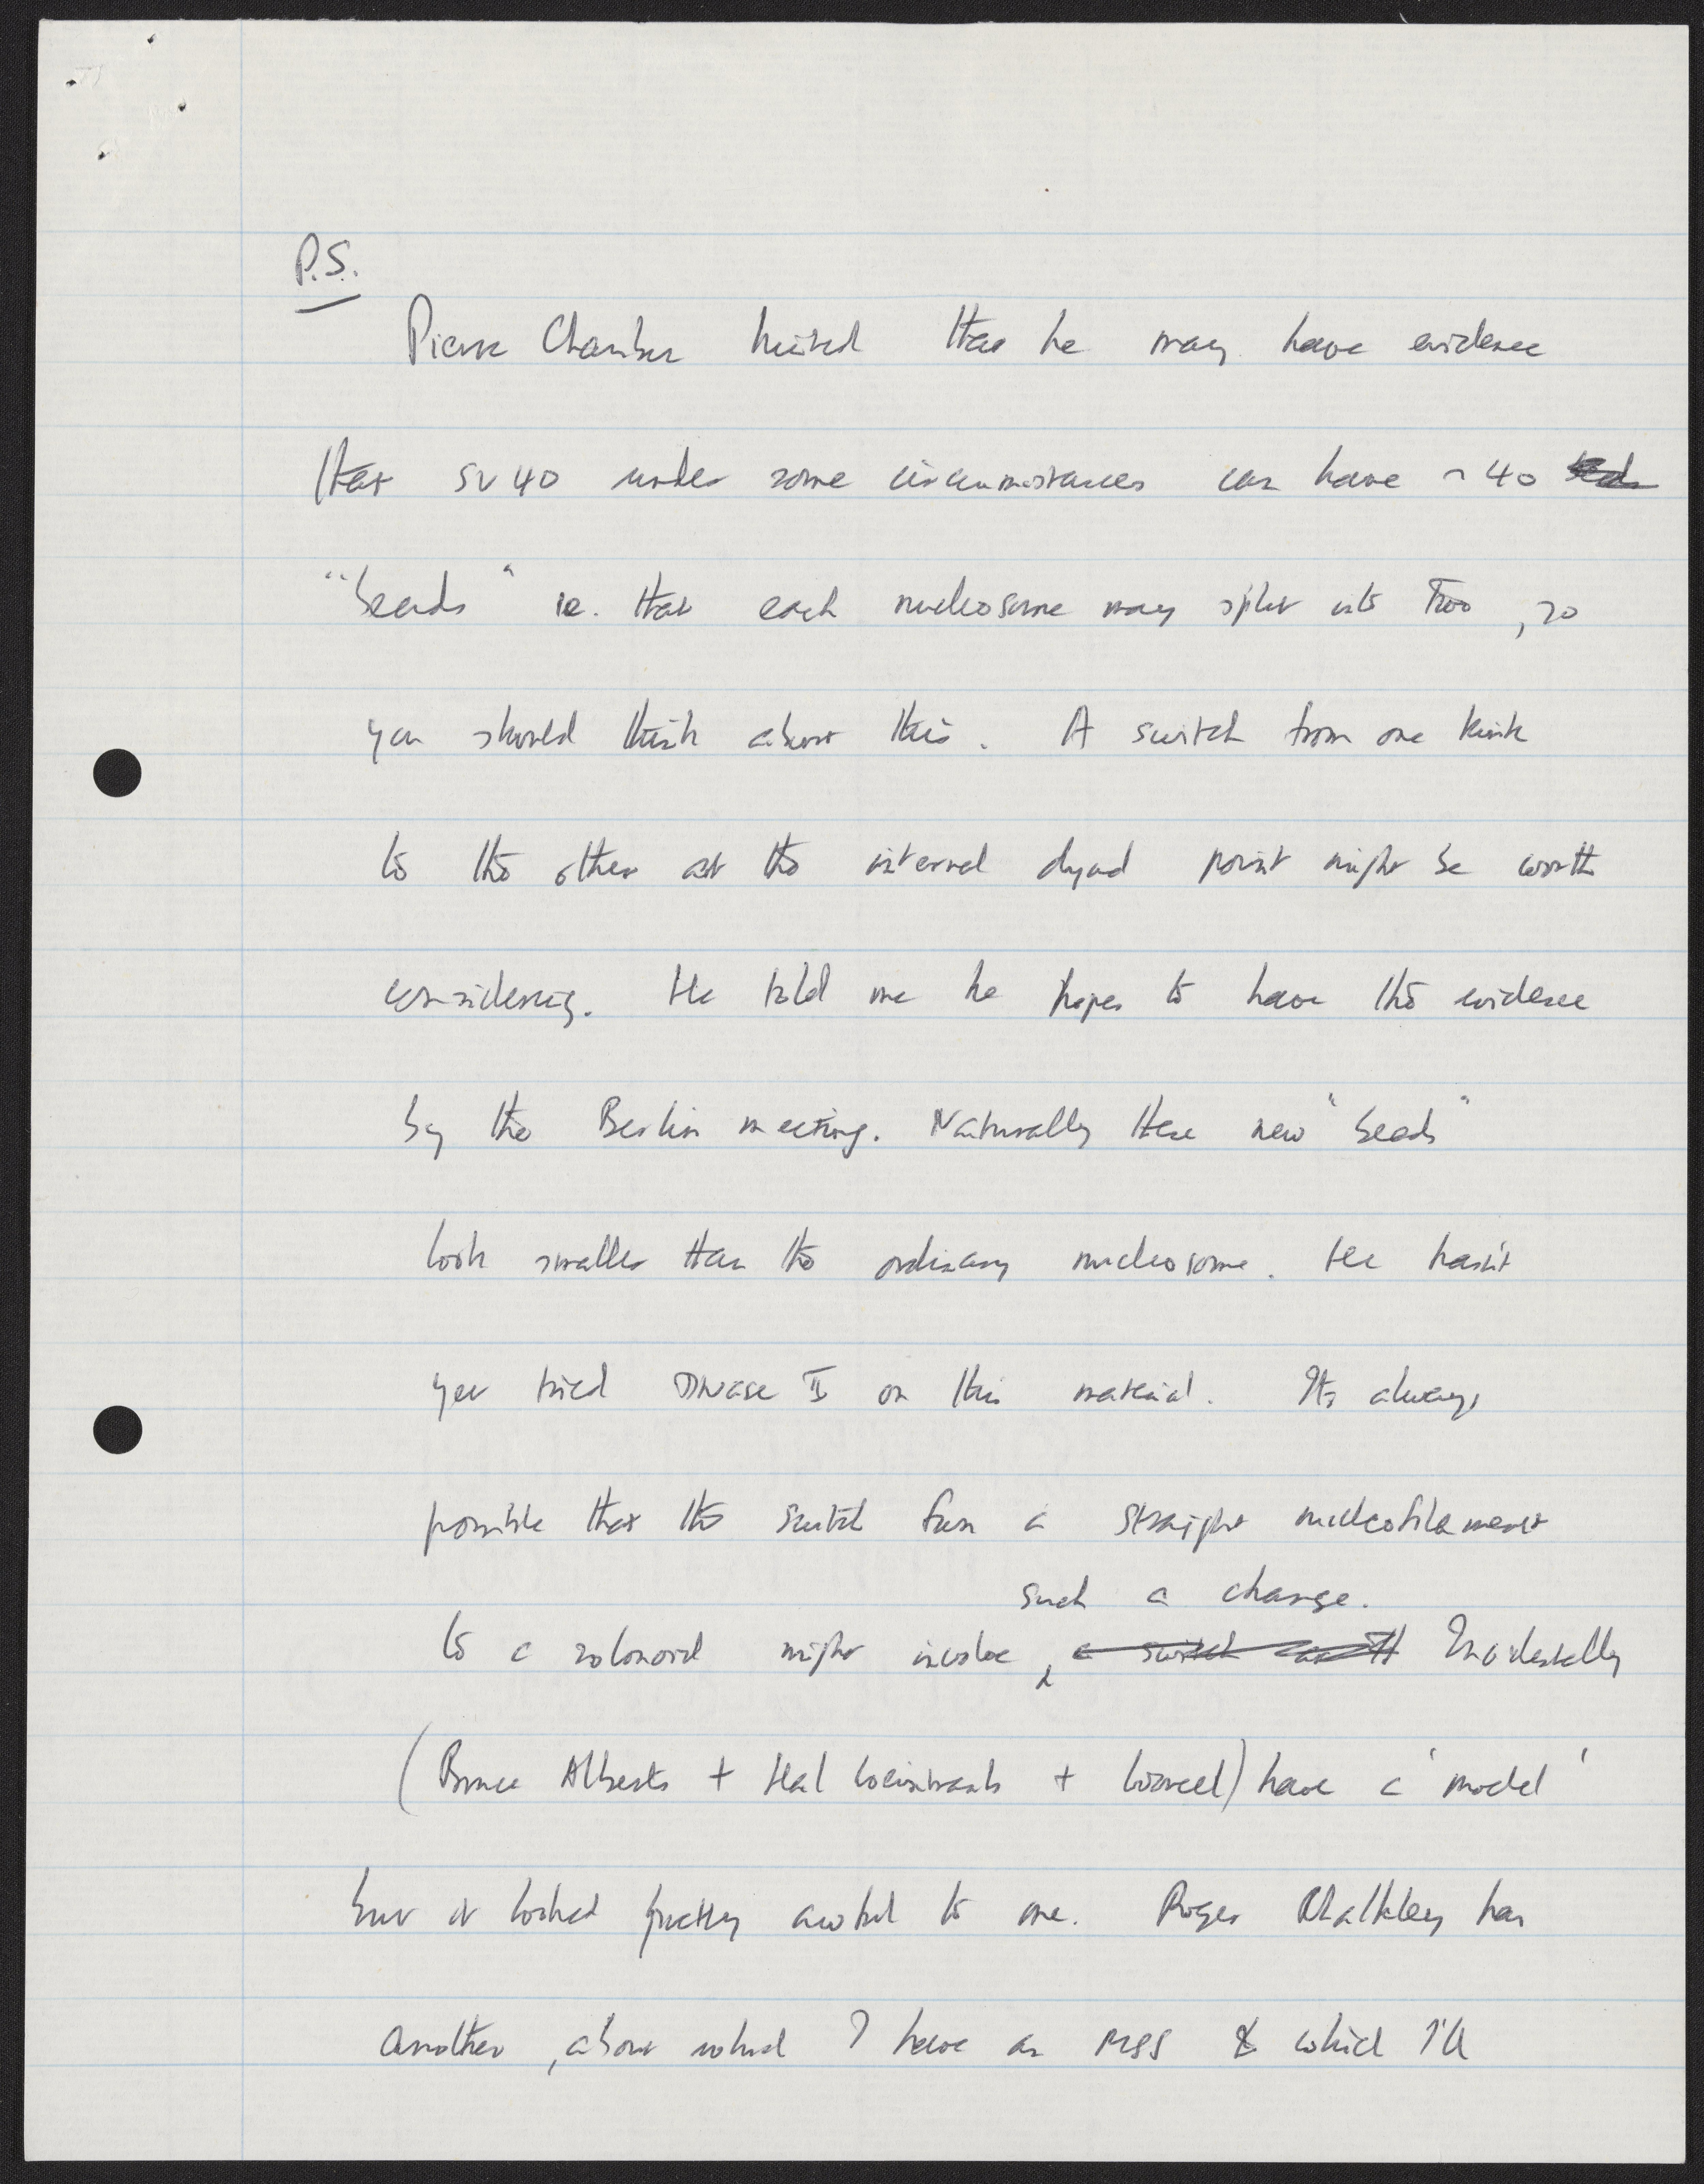 P.S.
Pierre Chambon hinted that he may have evidence
that SV40 under some circumstances can have ~ 40
"beads" ie. that each nucleosome may split into two, so
you should think about this. A switch from one kink
to the other at the internal dyad point might be worth
considering. He told me he hopes to have the evidence
by the Berlin meeting. Naturally these new "beads"
look smaller than the ordinary nucleosome. He hasn't
yet tried DNase II on this material. Its always
possible that the switch from a straight nucleofilament
such a change.
to a solonoid might involve, a switch Incidentally
(Bruce Alberts + Hal Weintraub + Worcel) have a 'model'
but it looked pretty awful to me. Roger Chalkley has
another, about which I have an MSS & which I'll